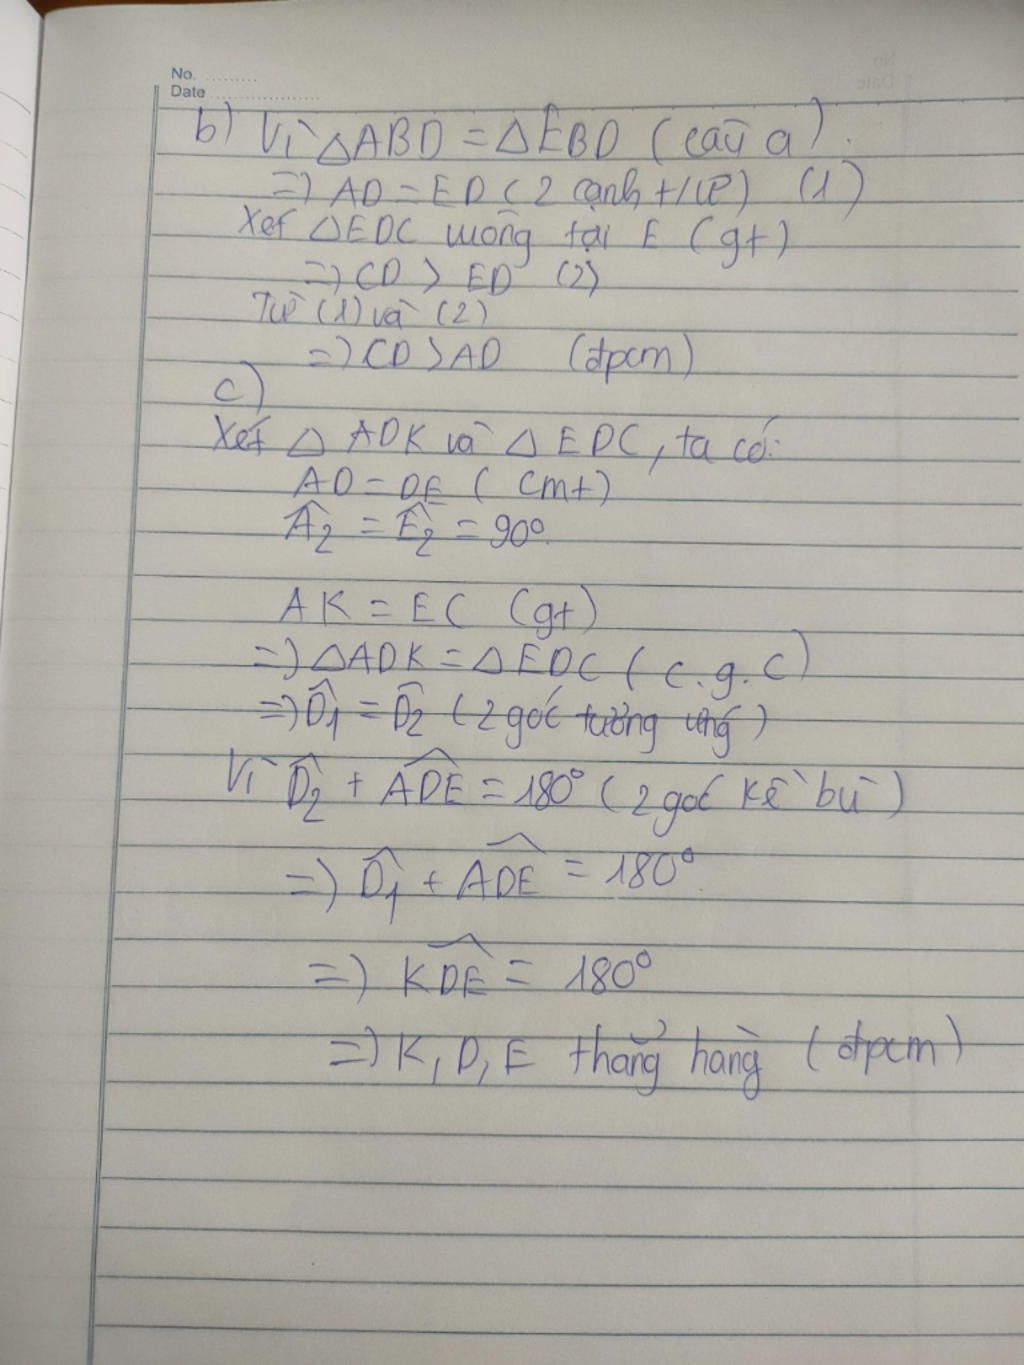 No. .........
Date ...................
b) Vì △ABD = △EBD (câu a).
=> AD = ED (2 cạnh t/ứ) (1)
Xét △EDC vuông tại E (gt)
=> CD > ED (2)
Từ (1) và (2)
=> CD > AD (đpcm)
c)
Xét △ ADK và △ EDC, ta có:
AD = DE ( cmt)
Â₂ = Ê₂ = 90°.
AK = EC (gt)
=> △ADK = △EDC ( c.g.c)
=> D̂₁ = D̂₂ (2 góc tương ứng)
Vì D̂₂ + ADÊ = 180° (2 góc kề bù)
=> D̂₁ + ADÊ = 180°.
=> KDÊ = 180°
=> K, D, E thẳng hàng (đpcm)